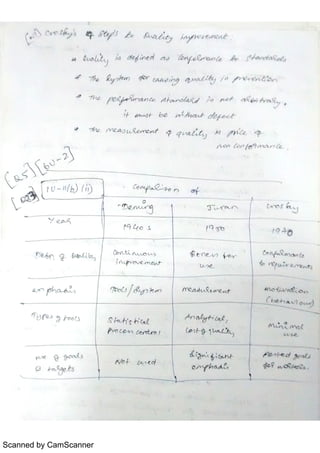 Crosby's 4 steps for Quality improvement
* Quality is defined as Conformance to Standards
* The System for causing quality is prevention
* The performance standard is not arbitrarily,
it must be without defect
* The measurement of quality is price of
non conformance.
Comparison of
Deming Juran Crosby
Year 1940s 1950
Defn of Quality Continuous improvement use Conformance to requirements
emphasis Tools/System measurement motivation (behaviour)
Types of tools Statistical process control Analytical, Cost of quality minimal use
use of goals & targets Not used Significant emphasis Posted goals for workers.
Scanned by CamScanner